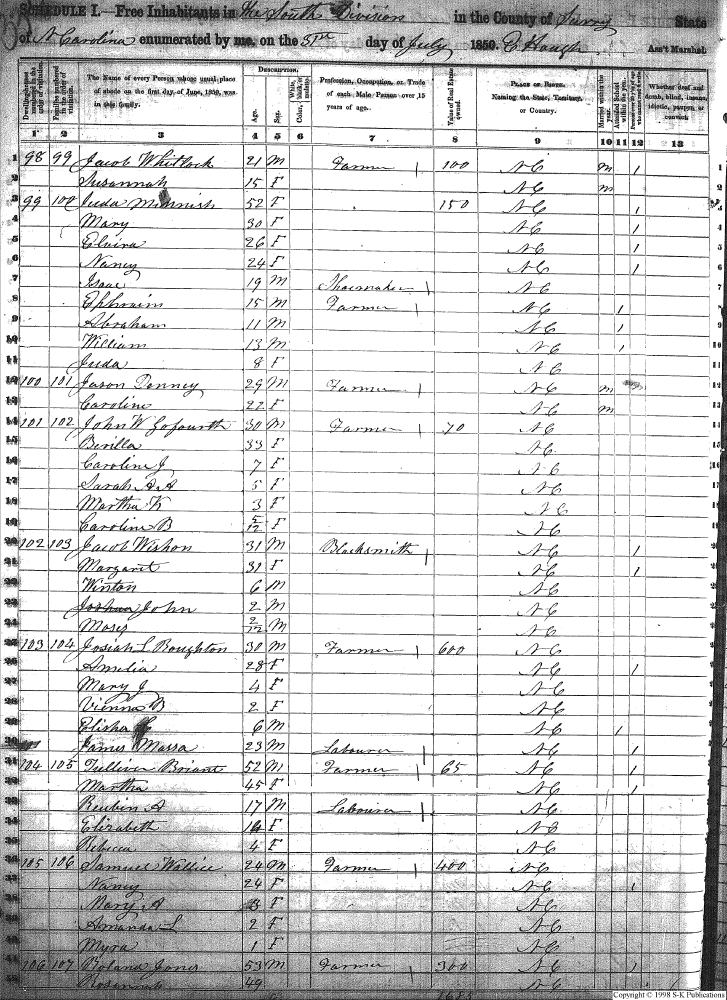 SCHEDULE I.—Free Inhabitants in the South Division in the County of Surry State
of N Carolina enumerated by me, on the 5th day of July 1850. Ass't Marshal.
Dwelling-houses numbered in the order of visitation.
Families numbered in the order of visitation.
The Name of every Person whose usual place of abode on the first day of June, 1850, was in this family.
Description.
Age.
Sex.
White, black, or mulatto.
Color,
Profession, Occupation, or Trade of each Male Person over 15 years of age.
Value of Real Estate owned.
Place of Birth.
Naming the State, Territory, or Country.
Married within the year.
Attended School within the year.
Whether deaf and dumb, blind, insane, idiotic, pauper, or convict.
1 2 3 4 5 6 7 8 9 10 11 12 13
1 98 99 Jacob Whitlock 21 M Farmer 1 100 NC m 1 1
2 Susannah 15 F NC m 2
3 99 100 Juda Minnish 52 F 150 NC 1
4 Mary 30 F NC 1 4
5 Elvira 26 F NC 1 5
6 Nancy 24 F NC 1 6
7 Isaac 19 M Shoemaker 1 NC 7
8 Ephraim 15 M Farmer 1 NC 1 8
9 Abraham 11 M NC 1 9
10 William 13 M NC 1 10
11 Juda 8 F NC 11
12 100 101 Jason Denney 29 M Farmer 1 NC m 12
13 Caroline 22 F NC m 13
14 101 102 John W 30 M Farmer 1 70 NC
15 Berilla 33 F NC
16 Caroline J 7 F NC 16
17 Sarah A A 5 F NC 17
18 Martha K 3 F NC 18
19 Caroline B 5/12 F NC 19
20 102 103 Jacob Wishon 31 M Blacksmith 1 NC 1
21 Margaret 31 F NC 1
22 Winton 6 M NC
23 Joshua John 2 M NC
24 Moses 2/12 M NC
25 103 104 Josiah L Boughton 30 M Farmer 1 600 NC
26 Amelia 28 F NC 1
27 Mary J 4 F NC
28 Vienna B 2 F NC
29 Elisha 6 M NC 1
30 James Massa 23 M Labourer 1 NC 1
31 104 105 Tulliver Briant 52 M Farmer 1 65 NC 1
32 Martha 45 F NC 1
33 Reubin A 17 M Labourer 1 NC
34 Elizabeth 14 F NC
35 Rebecca 4 F NC
36 105 106 Samuel Wallice 24 M Farmer 1 400 NC
37 Nancy 24 F NC 1
38 Mary A 3 F NC
39 Amanda L 2 F NC
40 Myra 1 F NC
41 106 107 Roland Jones 53 M Farmer 1 300 NC 1
42 Rosannah 49
Copyright © 1998 S-K Publications